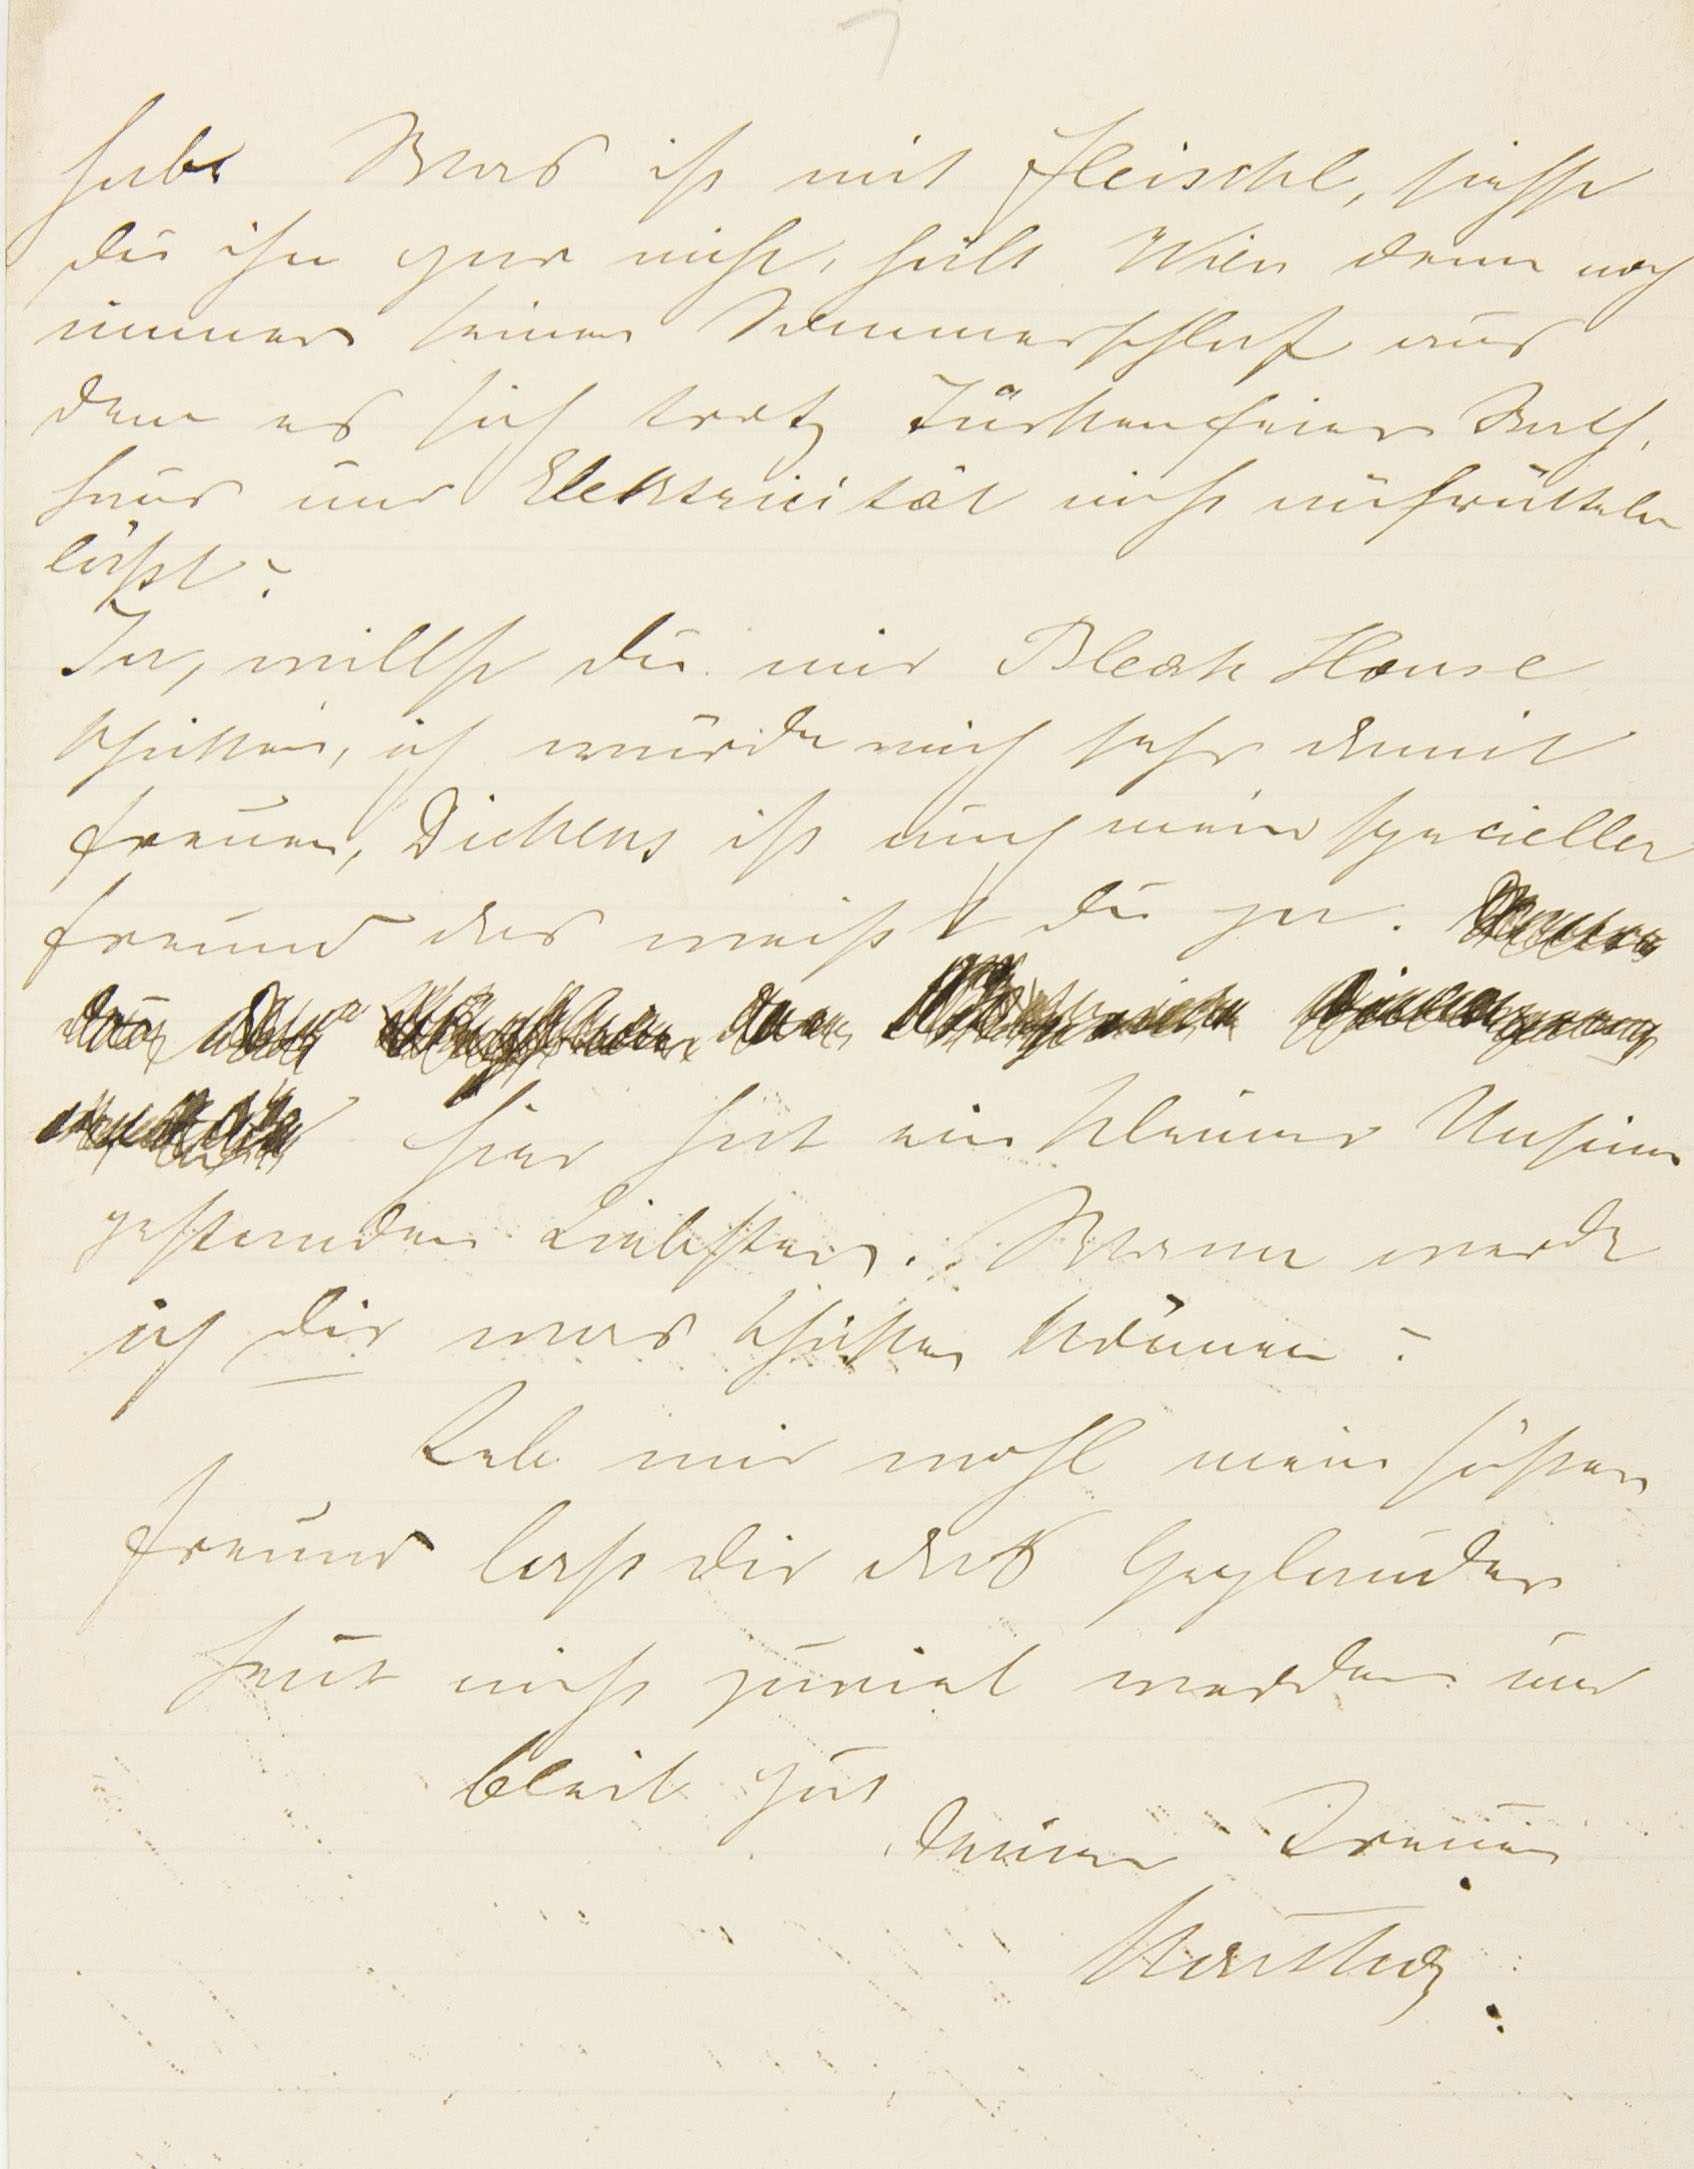 habe Was ist mit Fleischl, siehst
du ihn gar nicht, hält Wien denn noch
immer seinen Sommerschlaf aus
dem es sich trotz Türkenfeier Rath,
haus und Elektricität nicht aufrütteln
läßt?
Ja, willst du mir Bleak House
schicken, ich würde mich sehr damit
freuen, Dickens ist auch mein specieller
Freund das weißt du ja.
hier hat ein kleiner Unsinn
gestanden Liebster. Wann werde
ich dir was schicken können?
Leb mir wohl mein süßer
Freund laß dir das Geplauder
heut nicht zuviel werden und
bleib gut
Deiner Treuen
Martha